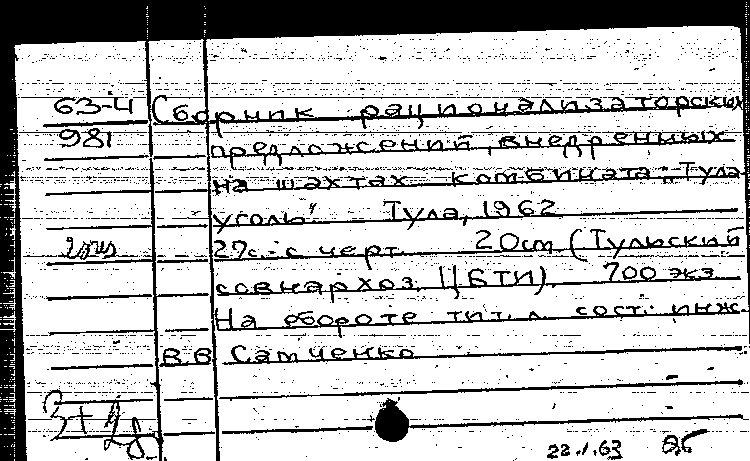 63-4 Сборник рационализаторских
981 предложений, внедренных
на шахтах комбината "Тула-
уголь". - Тула, 1962
2 экз 29с. с черт. 20см (Тульский
совнархоз. ЦБТИ). 700 экз.
На обороте тит. л. сост.: инж.
В.В. Сатченко
22.1.63